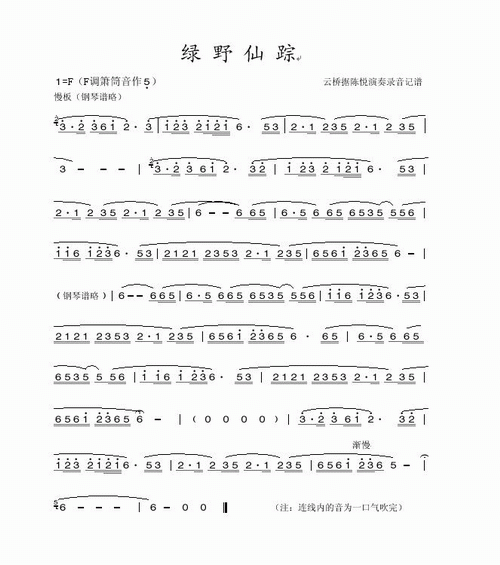 绿野仙踪
1=F（F调箫筒音作5）
云桥据陈悦演奏录音记谱
慢板（钢琴谱略）
3·2 361 2·3 | 123 2121 6·53 | 2·1 235 2·1 235 |
3 - - - | 3·2 361 2·32 | 123 2121 6·53 |
2·1 235 2·1 235 | 6 - - 665 | 6·5 665 6535 556 |
116 1236·53 | 2121 2353 2·1 235 | 6561 2365 6 - |
（钢琴谱略） | 6 - - 665 | 6·5 665 6535 556 | 116 1236·53 |
2121 2353 2·1 235 | 6561 2365 6·65 | 6·5 665
6535 5 56 | 116 1236·53 | 2121 2353 2·1 235 |
6561 2365 6 - | (0 0 0 0) | 3·2 361 2·32 |
渐慢
123 2121 6·53 | 2·1 235 2·1 235 | 6561 236 5 - |
6 - - - | 6 - 0 0 ‖
（注：连线内的音为一口气吹完）